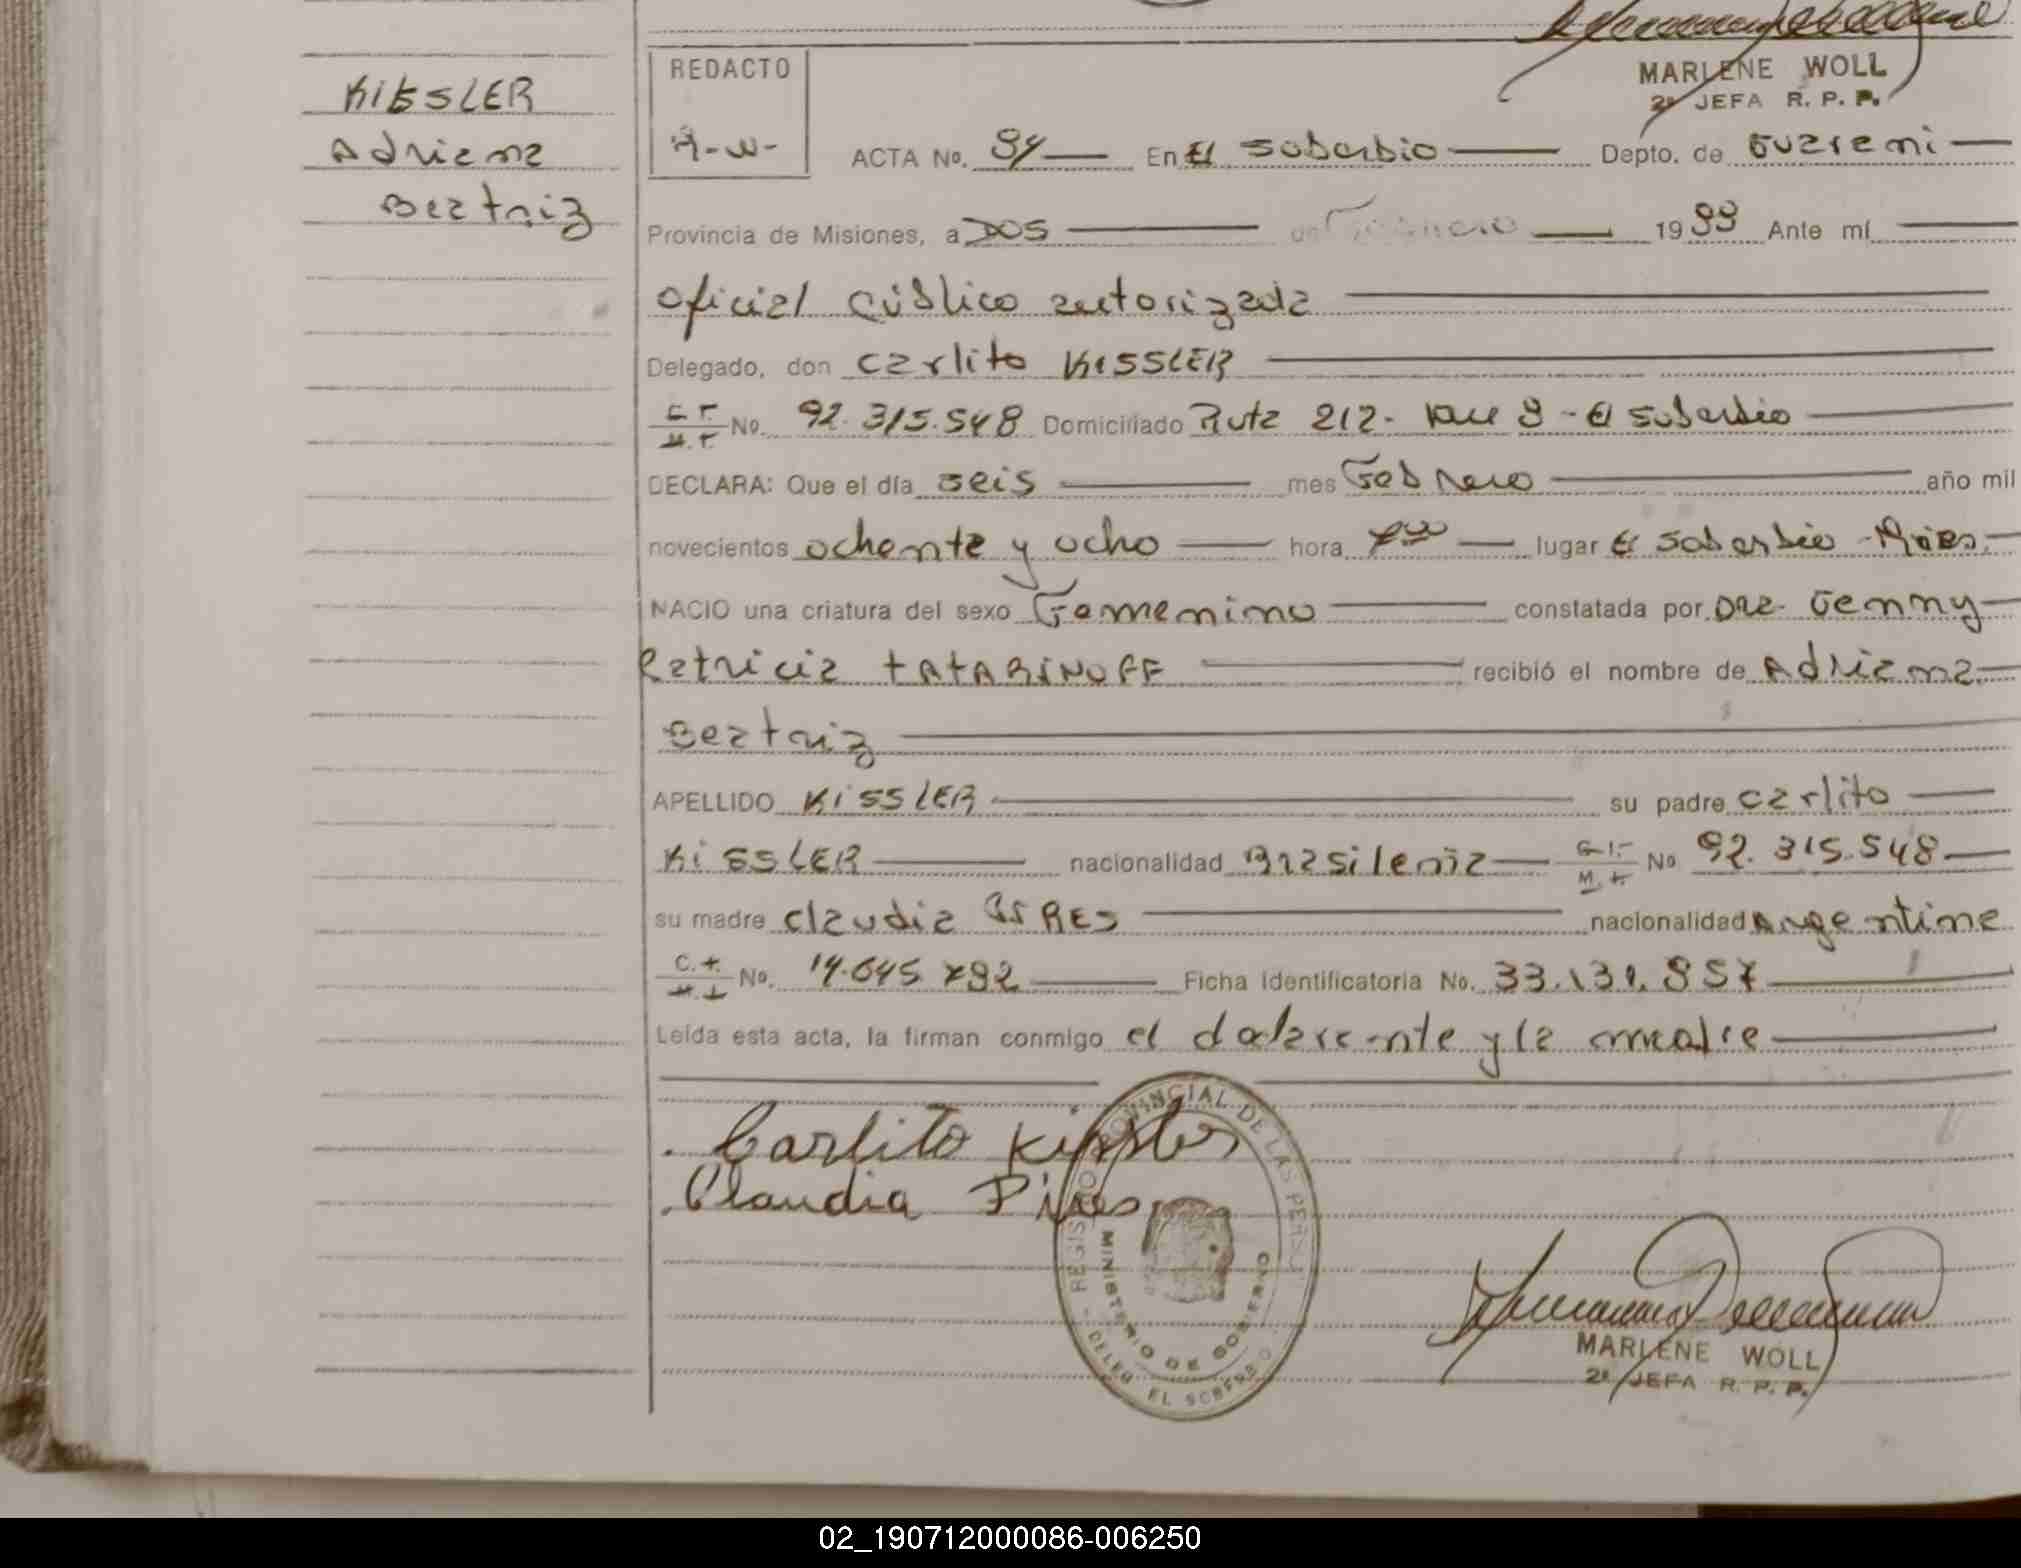 MARLENE WOLL
2ª JEFA R. P. P.
KIESSLER
Adriana
Beatriz
REDACTO
A-W-
ACTA No. 94 En El Soberbio Depto. de Guarani
Provincia de Misiones, a DOS de Febrero 1999 Ante mí
oficial público autorizada
Delegado, don Carlito KISSLER
No. 92.315.548 Domiciliado Ruta 212- km 9 - El Soberbio
DECLARA: Que el día seis mes Febrero año mil
novecientos ochenta y ocho hora lugar El Soberbio - Mnes.
NACIO una criatura del sexo Femenino constatada por Dra. Genny
Patricia TATARINOFF recibió el nombre de Adriana
Beatriz
APELLIDO KISSLER su padre Carlito
KISSLER nacionalidad Brasileña C.I. M.I. No 92.315.548
su madre Claudia PIRES nacionalidad Argentina
C.I. M.I. No. 14.645.792 Ficha Identificatoria No. 33.131.957
Leída esta acta, la firman conmigo el declarante y la madre
Carlito Kissler
Claudia Pires
REGISTRO PROVINCIAL DE LAS PERS.
MINISTERIO DE GOBIERNO
DELEG. EL SOBERBIO
MARLENE WOLL
2ª JEFA R. P. P.
02_190712000086-006250